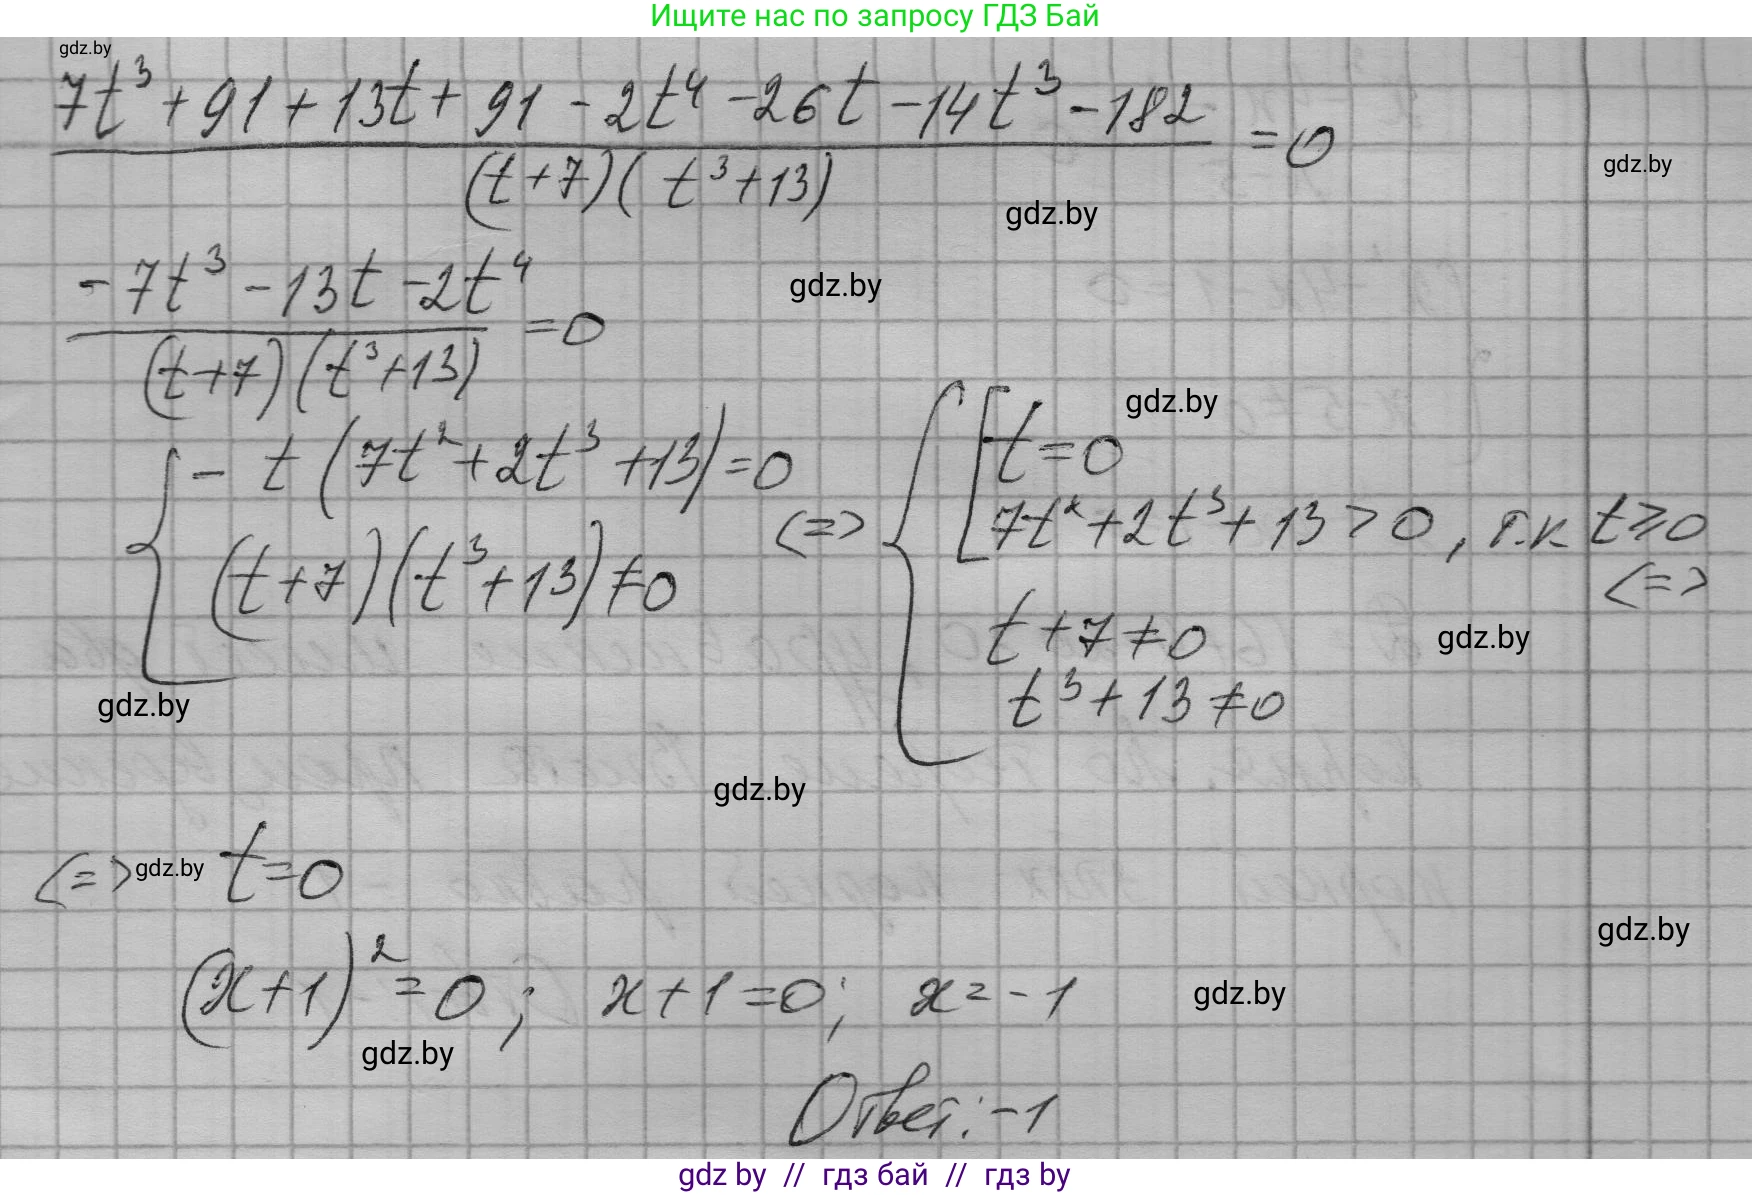 Ищите нас по запросу ГДЗ Бай
gdz.by
7t³ + 91 + 13t + 91 - 2t⁴ - 26t - 14t³ - 182
(t+7)(t³+13)
=0
gdz.by
gdz.by
-7t³ - 13t - 2t⁴
(t+7)(t³+13)
=0
gdz.by
{ -t(7t²+2t³+13)=0
(t+7)(t³+13)≠0
gdz.by
<=> { [ t=0
gdz.by
7t²+2t³+13>0, т.к t≥0
<=>
t+7≠0
gdz.by
t³+13≠0
gdz.by
<=> gdz.by t=0
gdz.by
(x+1)²=0; x+1=0; x=-1
gdz.by
gdz.by
Ответ: -1
gdz by // гдз бай // gdz by